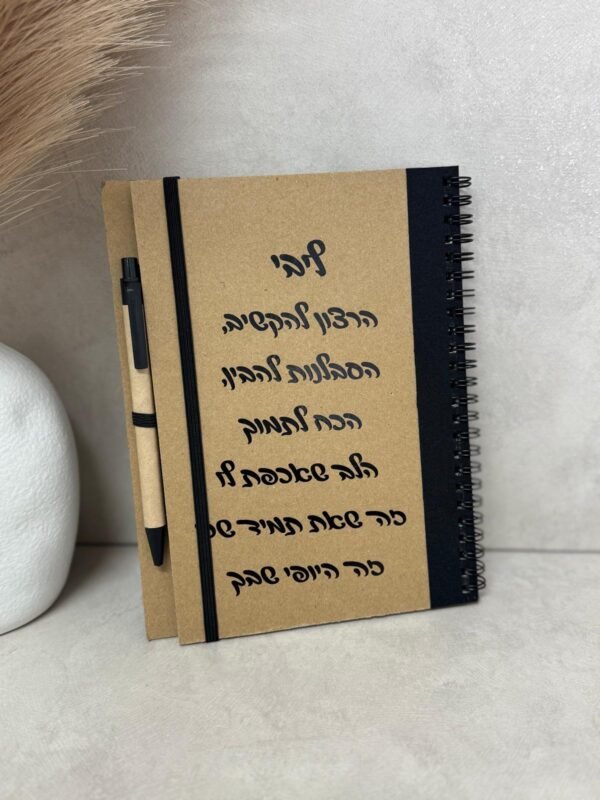 ליבי
הרצון להקשיב,
הסבלנות להבין,
הכח לתמוך
הלב שאכפת לו
זה שאת תמיד שם
זה היופי שבך